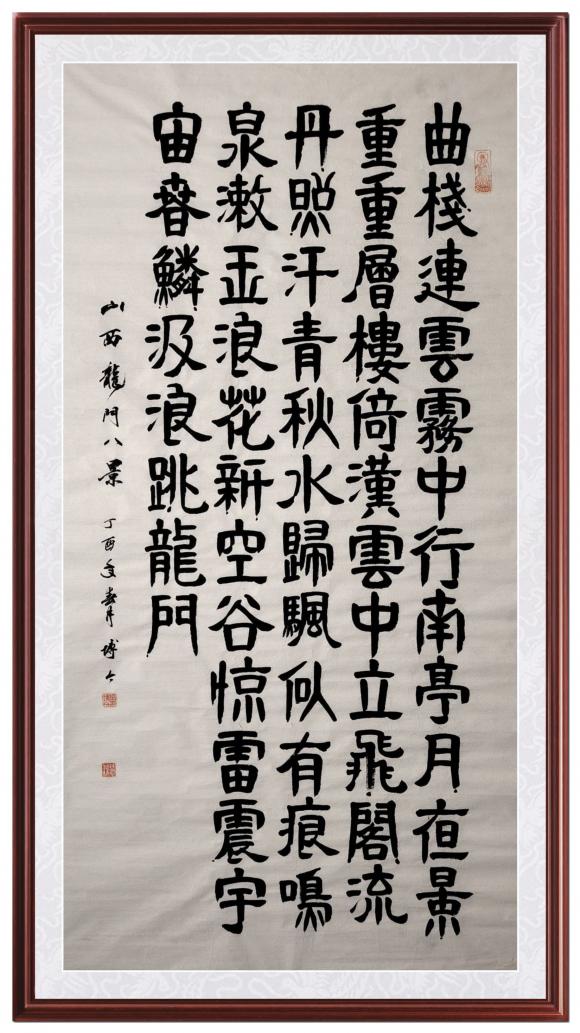 曲棧連雲霧中行南亭月夜景
重重層樓倚漢雲中立飛閣流
丹照汗青秋水歸颿似有痕鳴
泉漱玉浪花新空谷惊雷震宇
宙春鱗汲浪跳龍門
山西龍門八景 丁酉年 博